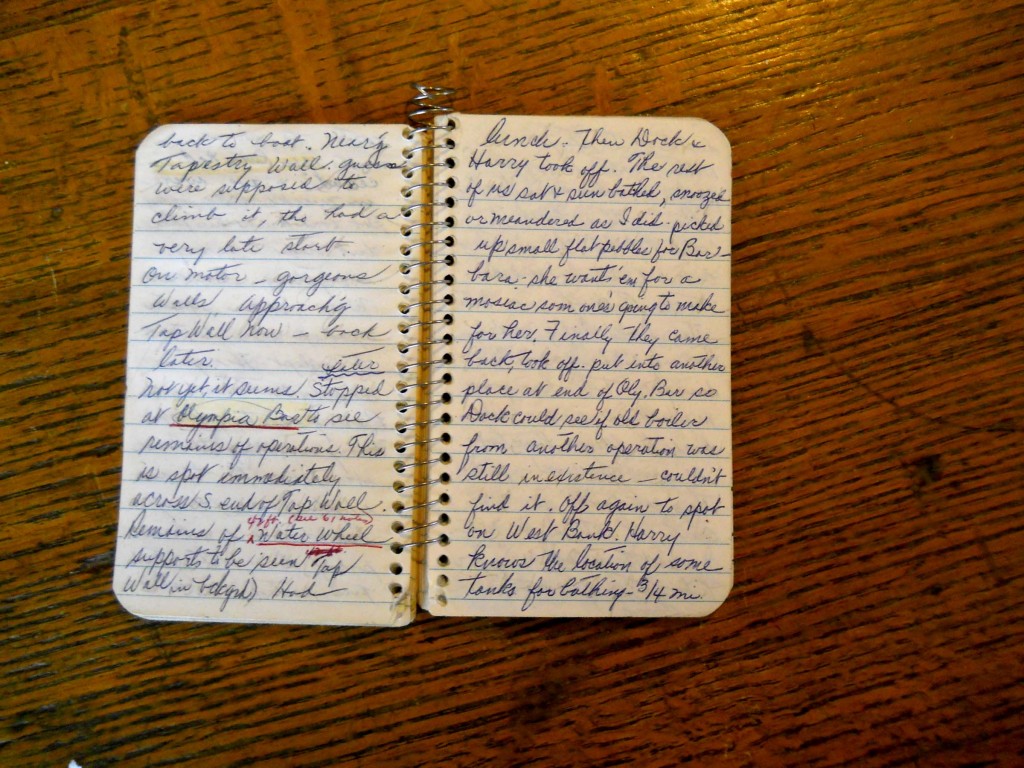 back to boat. Near'g
Tapestry Wall. guess
were supposed to
climb it, tho had a
very late start.
On motor – gorgeous
Walls approach'g
Tap Wall now – back
later.
later
Not yet, it seems. Stopped
at Olympia Bar to see
remains of operations. This
is spot immediately
across S. end of Tap Wall.
42 ft. (see 61 notes)
Remains of ^ Water Wheel
supports to be seen Tap
Wall in backgrd) Had
lunch. Then Dock &
Harry took off. The rest
of us sat & sun bathed, snoozed
or meandered as I did – picked
up small flat pebbles for Bar-
bara – she wants 'em for a
mosiac som one's going to make
for her. Finally they came
back, took off. put into another
place at end of Oly. Bar so
Dock could see if old boiler
from another operation was
still in existence – couldn't
find it. Off again to spot
on West Bank. Harry
knows the location of some
tanks for bathing – 3/4 mi.